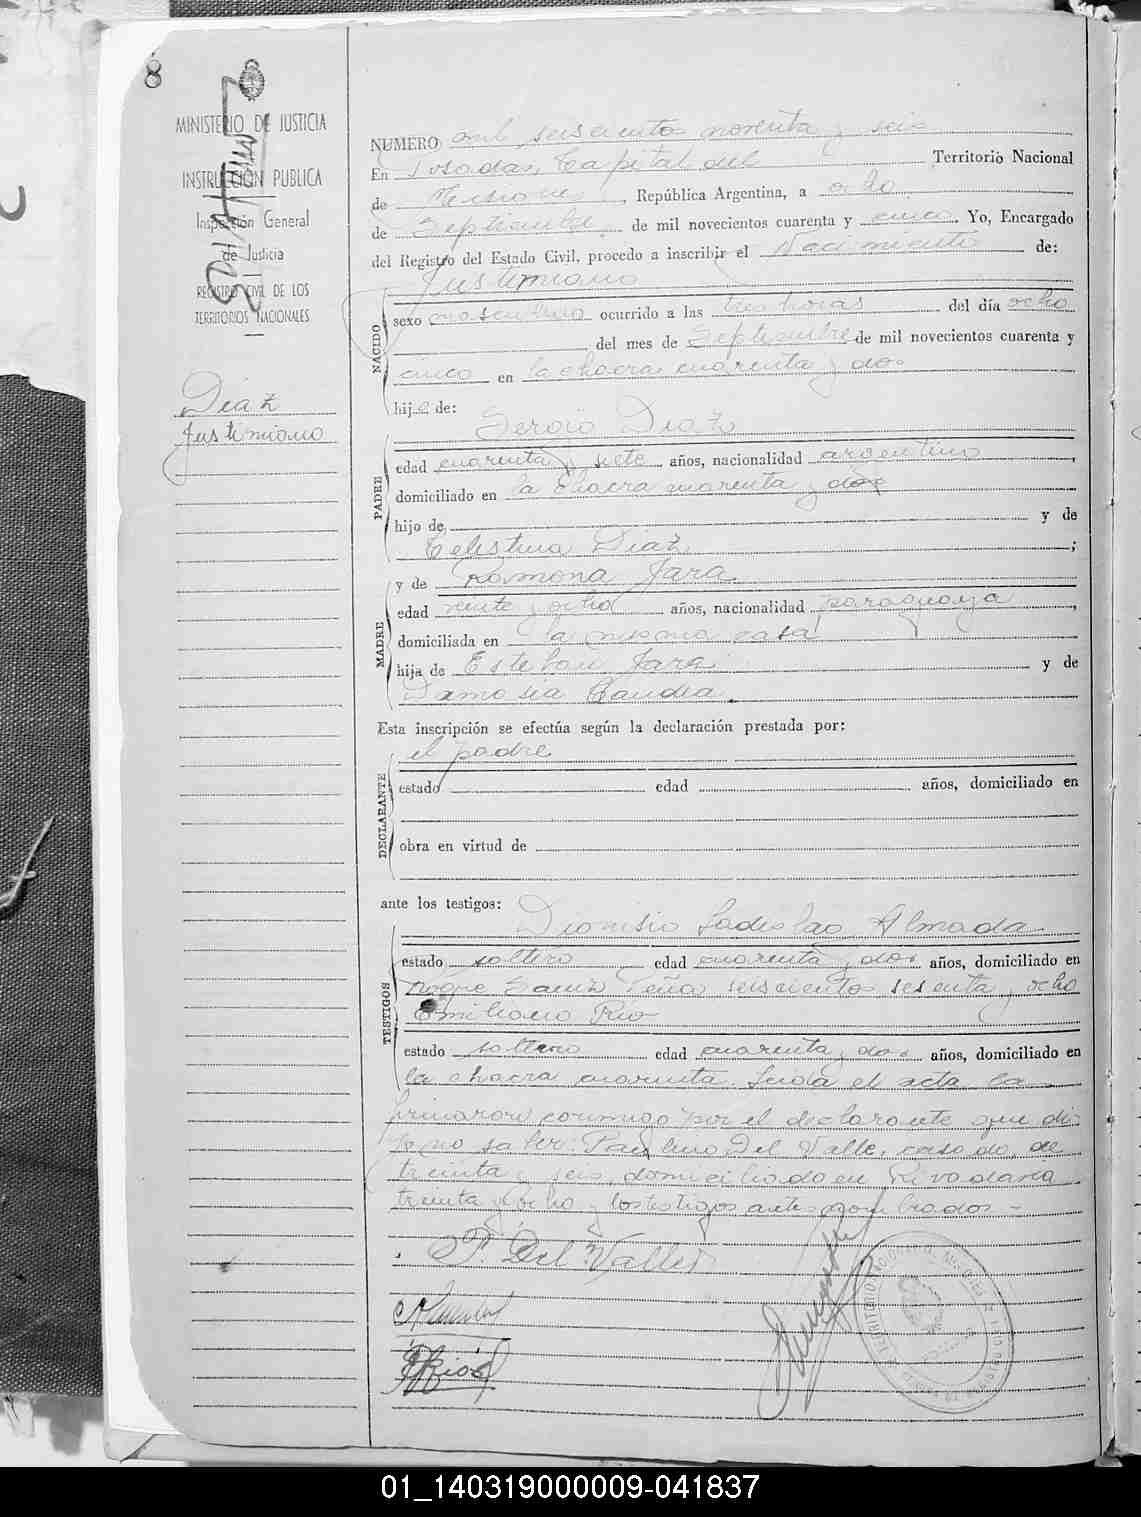 8
MINISTERIO DE JUSTICIA
E
INSTRUCCIÓN PUBLICA
Inspección General
de Justicia
REGISTRO CIVIL DE LOS
TERRITORIOS NACIONALES
Díaz
Justiniano
NUMERO mil seiscientos noventa y seis
En Posadas, Capital del Territorio Nacional
de Misiones, República Argentina, a ocho
de Septiembre de mil novecientos cuarenta y cinco. Yo, Encargado
del Registro del Estado Civil, procedo a inscribir el Nacimiento de:
Justiniano
NACIDO
sexo masculino ocurrido a las tres horas del día ocho
del mes de Septiembre de mil novecientos cuarenta y
cinco en la chacra cuarenta y dos
hijo de:
Sergio Diaz
PADRE
edad cuarenta y siete años, nacionalidad argentino,
domiciliado en la chacra cuarenta y dos
hijo de y de
Celestina Diaz;
y de Ramona Jara
MADRE
edad veinte y ocho años, nacionalidad paraguaya,
domiciliada en la misma casa
hija de Esteban Jara y de
Damasia Candia.
Esta inscripción se efectúa según la declaración prestada por:
el padre
DECLARANTE
estado edad años, domiciliado en
obra en virtud de
ante los testigos:
Dionisio Ladislao Almada
TESTIGOS
estado soltero edad cuarenta y dos años, domiciliado en
Roque Saenz Peña seiscientos sesenta y ocho
Emiliano Rio
estado soltero edad cuarenta y dos años, domiciliado en
la chacra cuarenta. Leida el acta la
firmaron conmigo por el declarante que di-
jo no saber: Paulino Del Valle, casado, de
treinta y seis, domiciliado en Rivadavia
treinta y ocho y los testigos antes nombrados -
P. Del Valle
E Rios
01_140319000009-041837